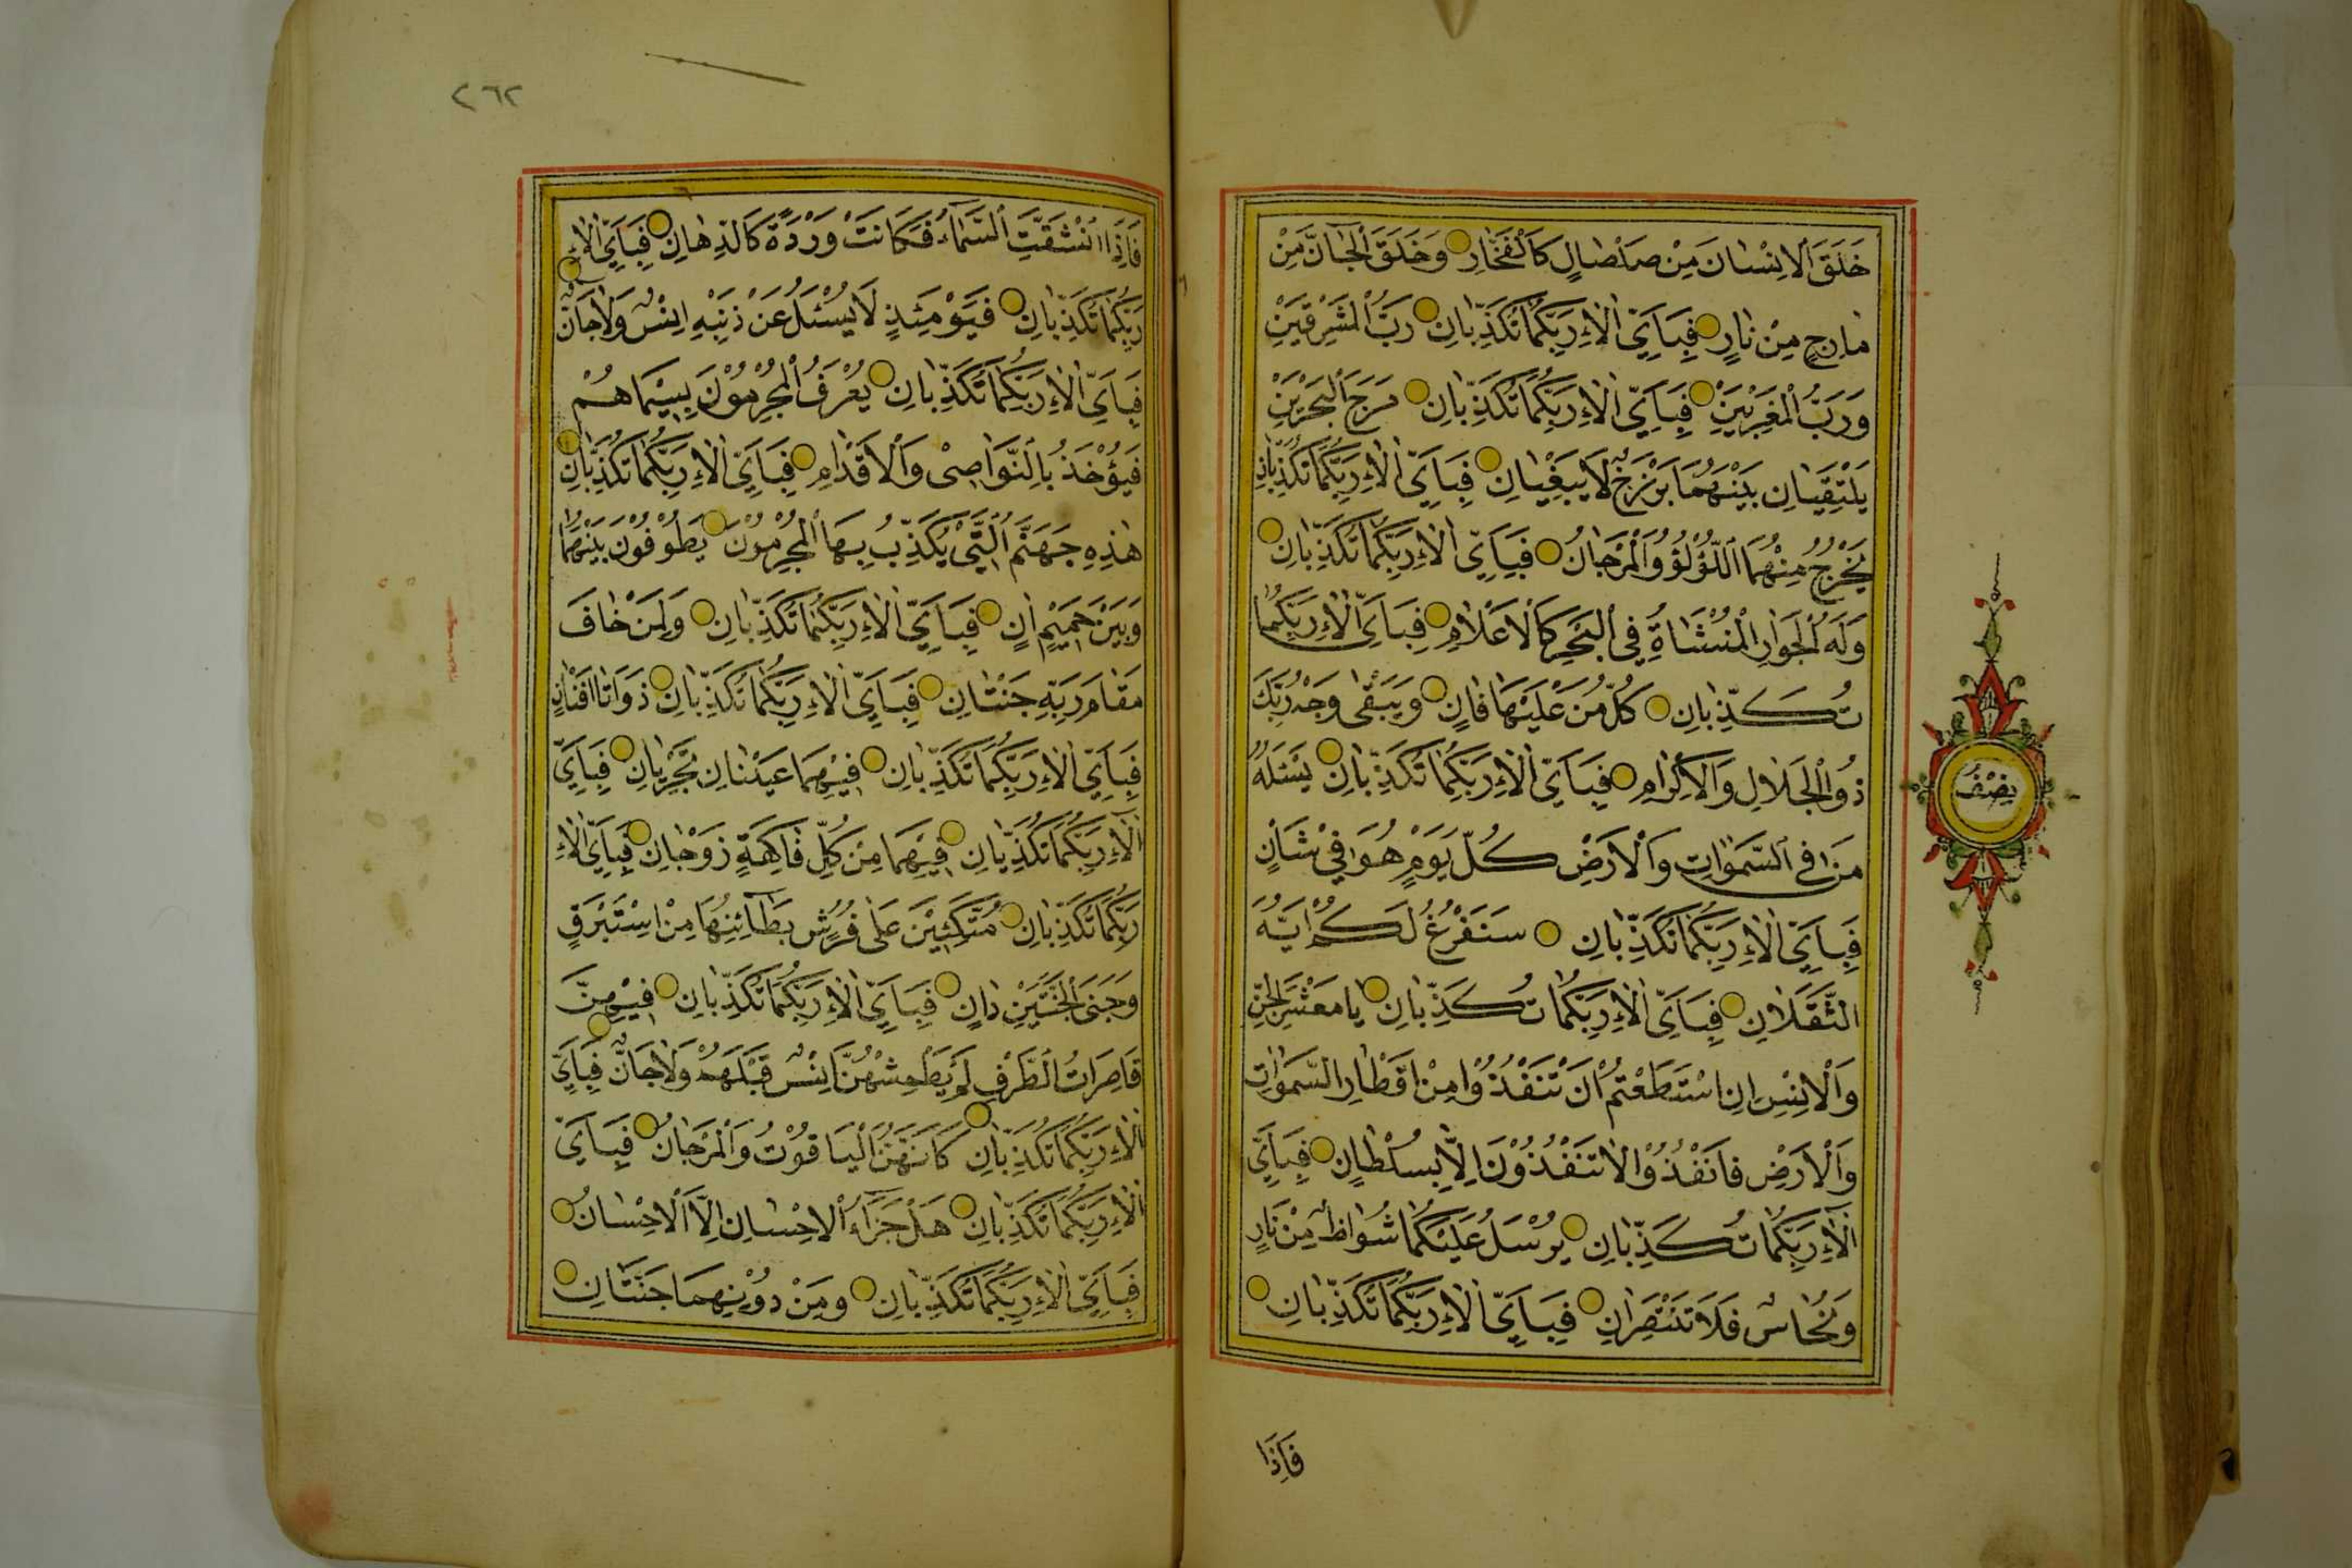 خَلَقَ الْاِنْسَانَ مِنْ صَلْصَالٍ كَالْفَخَّارِ وَخَلَقَ الْجَانَّ مِنْ
مَارِجٍ مِنْ نَارٍ فَبِاَيِّ اٰلَاءِ رَبِّكُمَا تُكَذِّبَانِ رَبُّ الْمَشْرِقَيْنِ
وَرَبُّ الْمَغْرِبَيْنِ فَبِاَيِّ اٰلَاءِ رَبِّكُمَا تُكَذِّبَانِ مَرَجَ الْبَحْرَيْنِ
يَلْتَقِيَانِ بَيْنَهُمَا بَرْزَخٌ لَا يَبْغِيَانِ فَبِاَيِّ اٰلَاءِ رَبِّكُمَا تُكَذِّبَانِ
يَخْرُجُ مِنْهُمَا اللُّؤْلُؤُ وَالْمَرْجَانُ فَبِاَيِّ اٰلَاءِ رَبِّكُمَا تُكَذِّبَانِ
وَلَهُ الْجَوَارِ الْمُنْشَاٰتُ فِي الْبَحْرِ كَالْاَعْلَامِ فَبِاَيِّ اٰلَاءِ رَبِّكُمَا
تُكَذِّبَانِ كُلُّ مَنْ عَلَيْهَا فَانٍ وَيَبْقٰى وَجْهُ رَبِّكَ
ذُو الْجَلَالِ وَالْاِكْرَامِ فَبِاَيِّ اٰلَاءِ رَبِّكُمَا تُكَذِّبَانِ يَسْئَلُهُ
مَنْ فِي السَّمٰوَاتِ وَالْاَرْضِ كُلَّ يَوْمٍ هُوَ فِي شَاْنٍ
فَبِاَيِّ اٰلَاءِ رَبِّكُمَا تُكَذِّبَانِ سَنَفْرُغُ لَكُمْ اَيُّهَ
الثَّقَلَانِ فَبِاَيِّ اٰلَاءِ رَبِّكُمَا تُكَذِّبَانِ يَا مَعْشَرَ الْجِنِّ
وَالْاِنْسِ اِنِ اسْتَطَعْتُمْ اَنْ تَنْفُذُوا مِنْ اَقْطَارِ السَّمٰوَاتِ
وَالْاَرْضِ فَانْفُذُوا لَا تَنْفُذُونَ اِلَّا بِسُلْطَانٍ فَبِاَيِّ
اٰلَاءِ رَبِّكُمَا تُكَذِّبَانِ يُرْسَلُ عَلَيْكُمَا شُوَاظٌ مِنْ نَارٍ
وَنُحَاسٌ فَلَا تَنْتَصِرَانِ فَبِاَيِّ اٰلَاءِ رَبِّكُمَا تُكَذِّبَانِ
فَاِذَا
نِصْفُ
٢٦٢
فَاِذَا انْشَقَّتِ السَّمَاءُ فَكَانَتْ وَرْدَةً كَالدِّهَانِ فَبِاَيِّ اٰلَاءِ
رَبِّكُمَا تُكَذِّبَانِ فَيَوْمَئِذٍ لَا يُسْئَلُ عَنْ ذَنْبِهِ اِنْسٌ وَلَا جَانٌّ
فَبِاَيِّ اٰلَاءِ رَبِّكُمَا تُكَذِّبَانِ يُعْرَفُ الْمُجْرِمُونَ بِسِيمَاهُمْ
فَيُؤْخَذُ بِالنَّوَاصِي وَالْاَقْدَامِ فَبِاَيِّ اٰلَاءِ رَبِّكُمَا تُكَذِّبَانِ
هٰذِهِ جَهَنَّمُ الَّتِي يُكَذِّبُ بِهَا الْمُجْرِمُونَ يَطُوفُونَ بَيْنَهَا
وَبَيْنَ حَمِيمٍ اٰنٍ فَبِاَيِّ اٰلَاءِ رَبِّكُمَا تُكَذِّبَانِ وَلِمَنْ خَافَ
مَقَامَ رَبِّهِ جَنَّتَانِ فَبِاَيِّ اٰلَاءِ رَبِّكُمَا تُكَذِّبَانِ ذَوَاتَا اَفْنَانٍ
فَبِاَيِّ اٰلَاءِ رَبِّكُمَا تُكَذِّبَانِ فِيهِمَا عَيْنَانِ تَجْرِيَانِ فَبِاَيِّ
اٰلَاءِ رَبِّكُمَا تُكَذِّبَانِ فِيهِمَا مِنْ كُلِّ فَاكِهَةٍ زَوْجَانِ فَبِاَيِّ اٰلَاءِ
رَبِّكُمَا تُكَذِّبَانِ مُتَّكِئِينَ عَلٰى فُرُشٍ بَطَائِنُهَا مِنْ اِسْتَبْرَقٍ
وَجَنَى الْجَنَّتَيْنِ دَانٍ فَبِاَيِّ اٰلَاءِ رَبِّكُمَا تُكَذِّبَانِ فِيهِنَّ
قَاصِرَاتُ الطَّرْفِ لَمْ يَطْمِثْهُنَّ اِنْسٌ قَبْلَهُمْ وَلَا جَانٌّ فَبِاَيِّ
اٰلَاءِ رَبِّكُمَا تُكَذِّبَانِ كَاَنَّهُنَّ الْيَاقُوتُ وَالْمَرْجَانُ فَبِاَيِّ
اٰلَاءِ رَبِّكُمَا تُكَذِّبَانِ هَلْ جَزَاءُ الْاِحْسَانِ اِلَّا الْاِحْسَانُ
فَبِاَيِّ اٰلَاءِ رَبِّكُمَا تُكَذِّبَانِ وَمِنْ دُونِهِمَا جَنَّتَانِ